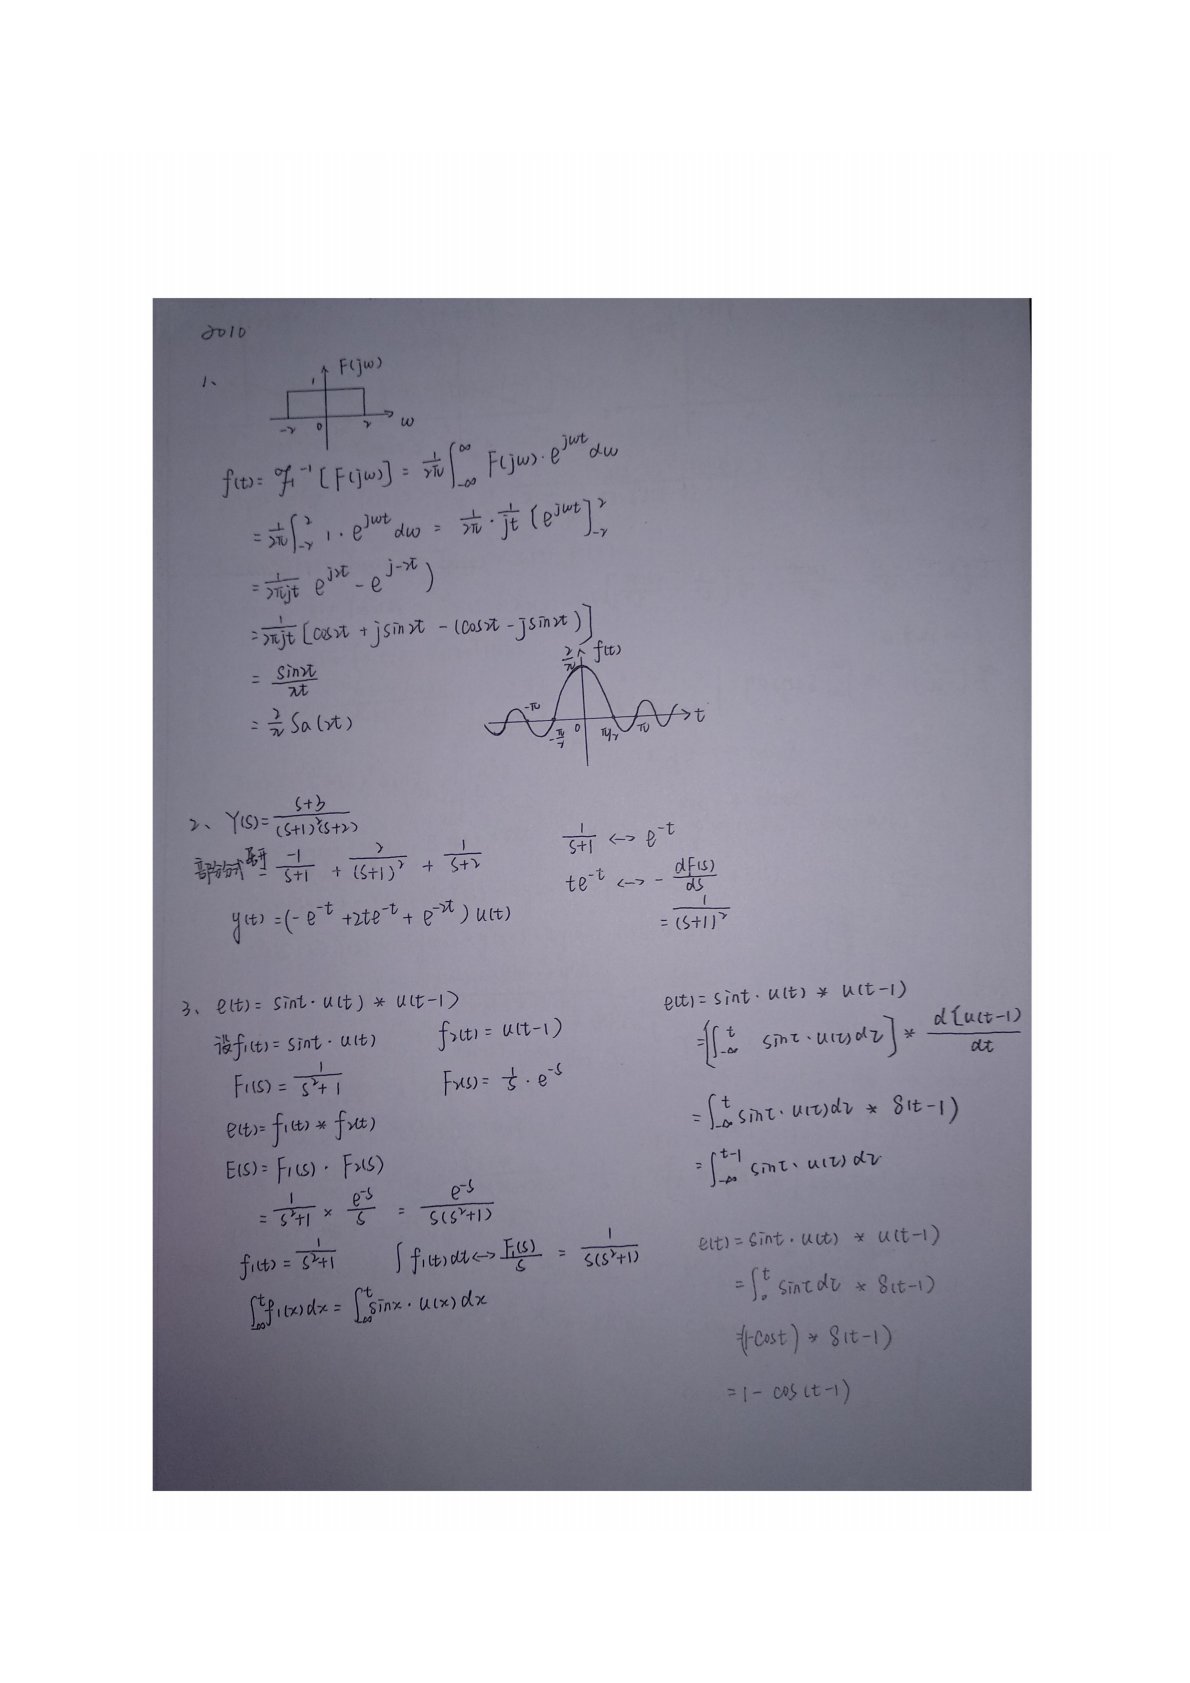 2010
1、
F(jω)
1
-2 0 2 ω
f(t)= ℱ⁻¹[F(jω)] = 1/2π ∫_{-∞}^{∞} F(jω)·e^{jωt}dω
= 1/2π ∫_{-2}^{2} 1·e^{jωt}dω = 1/2π · 1/jt [e^{jωt}]_{-2}^{2}
= 1/2πjt e^{j2t} - e^{j-2t})
= 1/2πjt [cos2t + jsin2t - (cos2t - jsin2t)]
= sin2t/πt
= 2/π Sa(2t)
2/π f(t)
-π -π/2 0 π/2 π t
2、 Y(s)= s+3/(s+1)²(s+2)
部分分式展开 = -1/s+1 + 2/(s+1)² + 1/s+2
y(t) =(-e^{-t} +2te^{-t} + e^{-2t})u(t)
1/s+1 ↔ e^{-t}
te^{-t} ↔ - dF(s)/ds
= 1/(s+1)²
3、 e(t)= sint·u(t) * u(t-1)
设f₁(t)= sint·u(t) f₂(t) = u(t-1)
F₁(s) = 1/s²+1 F₂(s)= 1/s · e^{-s}
e(t)= f₁(t) * f₂(t)
E(s)= F₁(s) · F₂(s)
= 1/s²+1 × e^{-s}/s = e^{-s}/s(s²+1)
f₁(t) = 1/s²+1 ∫f₁(t)dt ↔ F₁(s)/s = 1/s(s²+1)
∫_{-∞}^{t} f₁(x)dx = ∫_{-∞}^{t} sinx·u(x)dx
e(t)= sint·u(t) * u(t-1)
=[∫_{-∞}^{t} sinτ·u(τ)dτ] * d[u(t-1)/dt
= ∫_{-∞}^{t} sinτ·u(τ)dτ * δ(t-1)
= ∫_{-∞}^{t-1} sinτ·u(τ)dτ
e(t) = sint·u(t) * u(t-1)
= ∫_{0}^{t} sinτdτ * δ(t-1)
=(1-cost) * δ(t-1)
= 1 - cos(t-1)